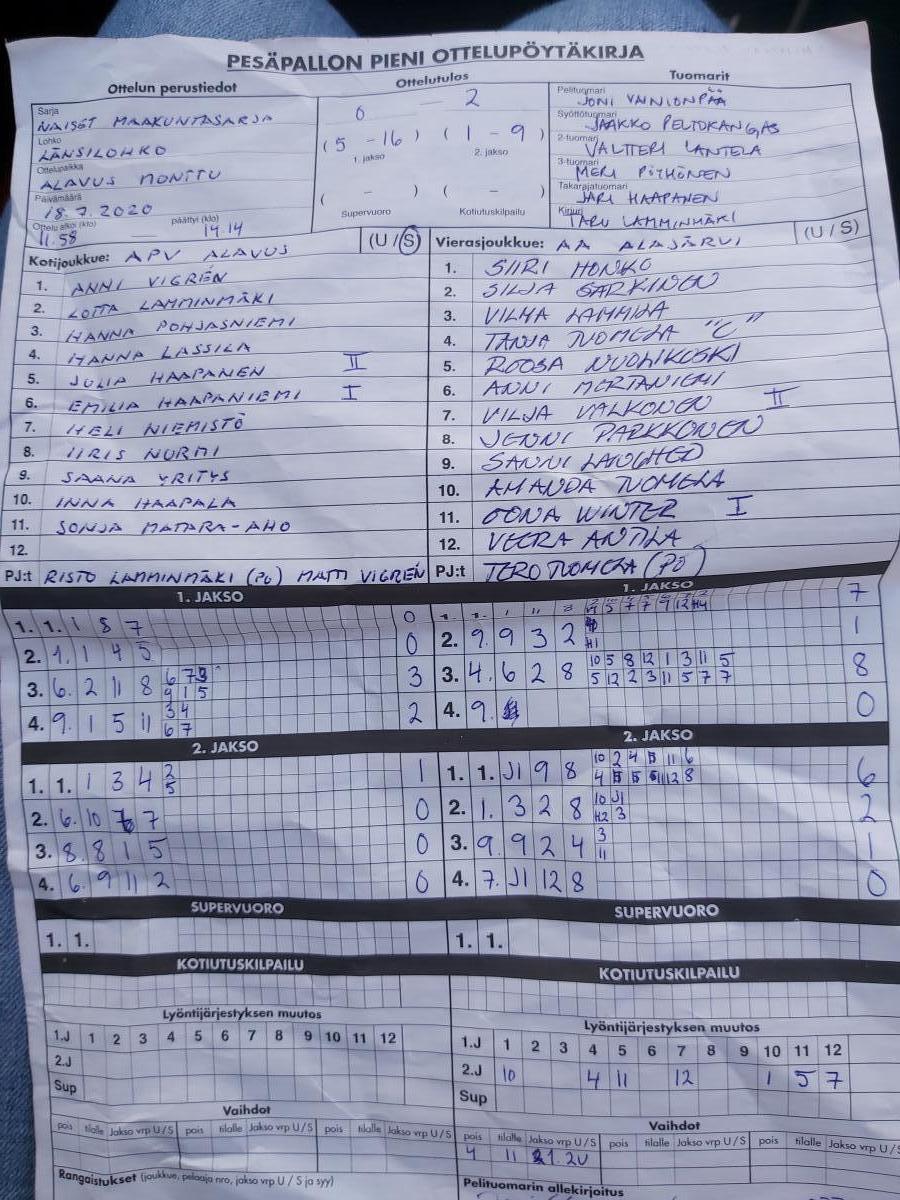 PESÄPALLON PIENI OTTELUPÖYTÄKIRJA
Ottelun perustiedot
Sarja
NAISET MAAKUNTASARJA
Lohko
LÄNSILOHKO
Ottelupaikka
ALAVUS MONTTU
Päivämäärä
18.7.2020
Ottelu alkoi (klo) päättyi (klo)
11.58 — 14.14
Ottelutulos
0 — 2
(5 - 16) (1 - 9)
1. jakso 2. jakso
( - ) ( - )
Supervuoro Kotiutuskilpailu
Tuomarit
Pelituomari
JONI VAINIONPÄÄ
Syöttötuomari
JAAKKO PELTOKANGAS
2-tuomari
VALTTERI LANTELA
3-tuomari
MERI PÖYHÖNEN
Takarajatuomari
JARI HAAPANEN
Kirjuri
TARU LAMMINMÄKI
Kotijoukkue: APV ALAVUS (U / S)
1. ANNI VIGREN
2. LOTTA LAMMINMÄKI
3. HANNA POHJASNIEMI
4. HANNA LASSILA
5. JULIA HAAPANEN II
6. EMILIA HAAPANIEMI I
7. HELI NIEMISTÖ
8. IIRIS NURMI
9. SAANA YRITYS
10. INNA HAAPALA
11. SONJA MATARA-AHO
12.
PJ:t RISTO LAMMINMÄKI (PÖ) MATTI VIGREN
Vierasjoukkue: AA ALAJÄRVI (U / S)
1. SIIRI HONKO
2. SILJA SARKINEN
3. VILMA LAMMILA
4. TANJA TUOMELA "C"
5. ROOSA NUOLIKOSKI
6. ANNI MERTANIEMI
7. VILJA VALKONEN II
8. JENNI PARKKONEN
9. SANNI
10. AMANDA TUOMELA
11. OONA WINTER I
12. VEERA ANTILA
PJ:t TERO TUOMELA (PÖ)
1. JAKSO
1. 1. 1 8 7 0
2. 1. 1 4 5 0
3. 6. 2 11 8 3
9 1 5
4. 9. 1 5 11 3 4 2
6 7
1. JAKSO
7
2. 9. 9 3 2 1
3. 4. 6 2 8 10 5 8 12 1 3 11 5 8
5 12 2 3 11 5 7 7
4. 9. 0
2. JAKSO
1. 1. 1 3 4 2 1
5
2. 6. 10 7 0
3. 8. 8 1 5 0
4. 6. 9 11 2 0
2. JAKSO
1. 1. J1 9 8 10 2 4 5 11 6 6
2. 1. 3 2 8 10 J1 2
H2 3
3. 9. 9 2 4 3 1
11
4. 7. J1 12 8 0
SUPERVUORO
1. 1.
SUPERVUORO
1. 1.
KOTIUTUSKILPAILU
KOTIUTUSKILPAILU
Lyöntijärjestyksen muutos
1.J 1 2 3 4 5 6 7 8 9 10 11 12
2.J
Sup
Lyöntijärjestyksen muutos
1.J 1 2 3 4 5 6 7 8 9 10 11 12
2.J 10 4 11 12 1 5 7
Sup
Vaihdot
pois tilalle Jakso vrp U / S pois tilalle Jakso vrp U / S pois tilalle Jakso vrp U / S
Vaihdot
pois tilalle Jakso vrp U / S pois tilalle Jakso vrp U / S pois tilalle Jakso vrp U / S
4 11
Rangaistukset (joukkue, pelaaja nro, jakso vrp U / S ja syy)
Pelituomarin allekirjoitus